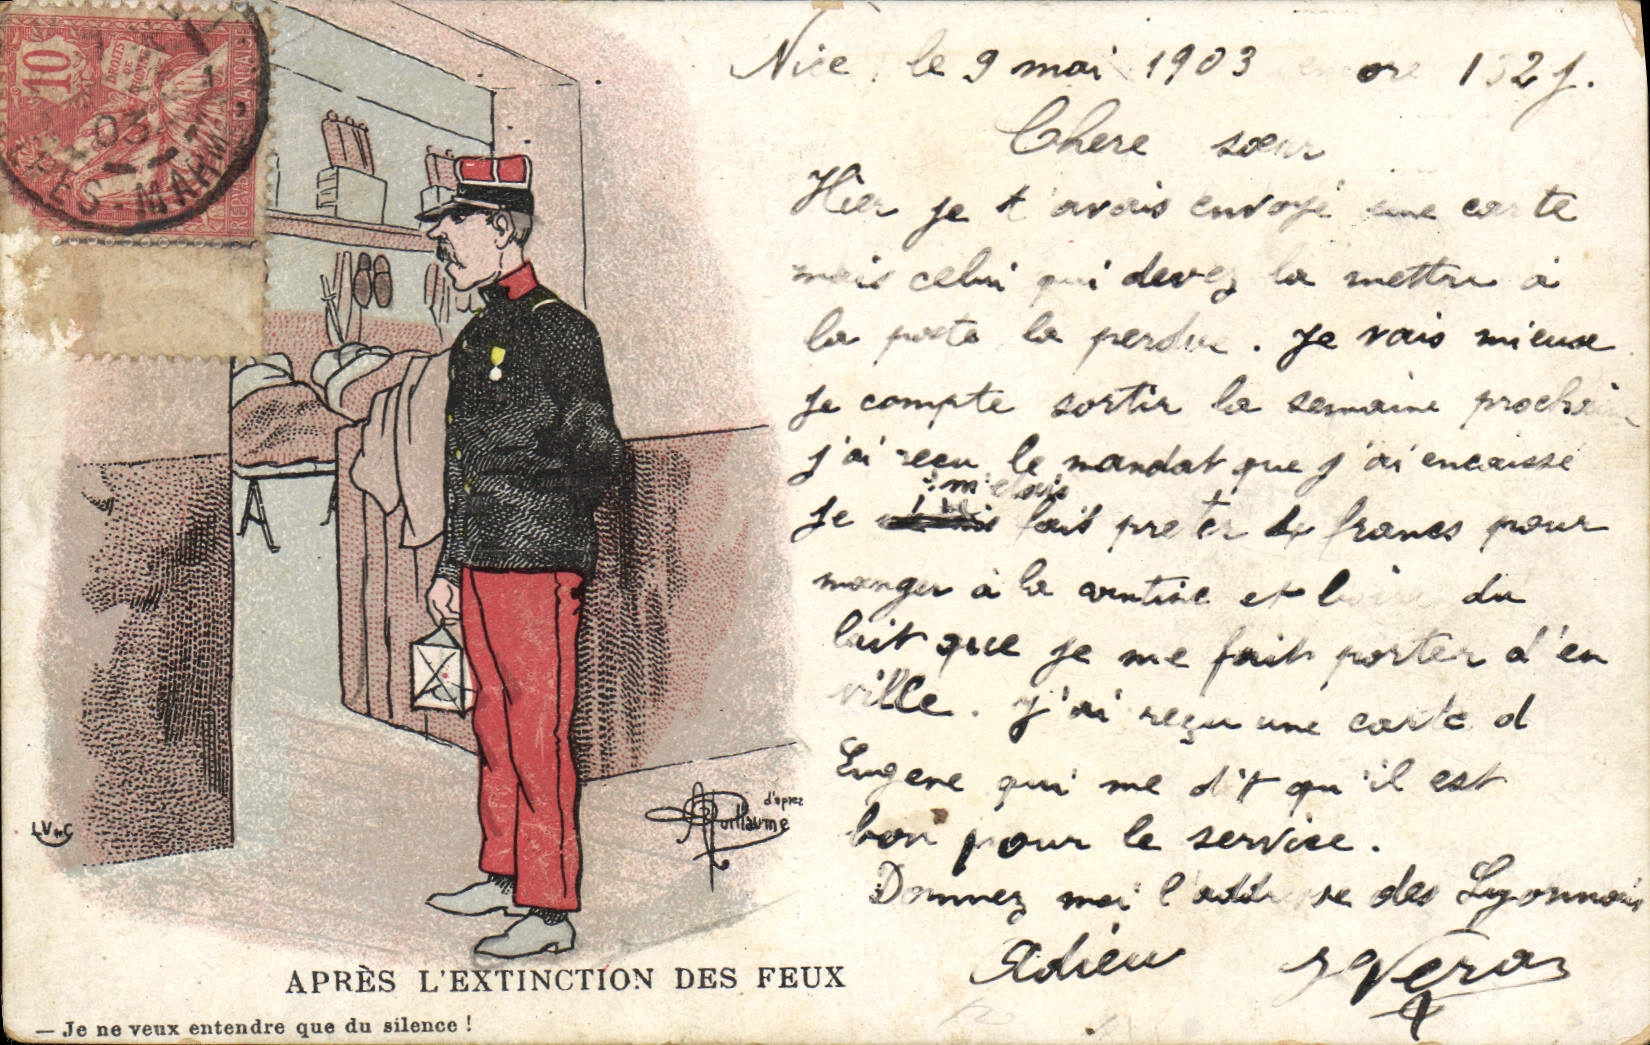 10
DROITS
DE
L'HOMME
03
PES-MARITIMES
Nice, le 9 mai 1903 encore 132 j.
Chere sœur
Hier je t'avais envoyé une carte
mais celui qui devez la mettre à
la poste la perdue. Je vais mieux
je compte sortir la semaine prochaine
j'ai reçu le mandat que j'ai encaissé
m'etais
Je fait preter 4 francs pour
manger à la cantine et boire du
lait que je me fait porter d'en
ville. J'ai reçu une carte d
Eugene qui me dit qu'il est
bon pour le service.
Donnez moi l'addresse des Lyonnais
Adieu
d'après
Guillaume
APRÈS L'EXTINCTION DES FEUX
— Je ne veux entendre que du silence !